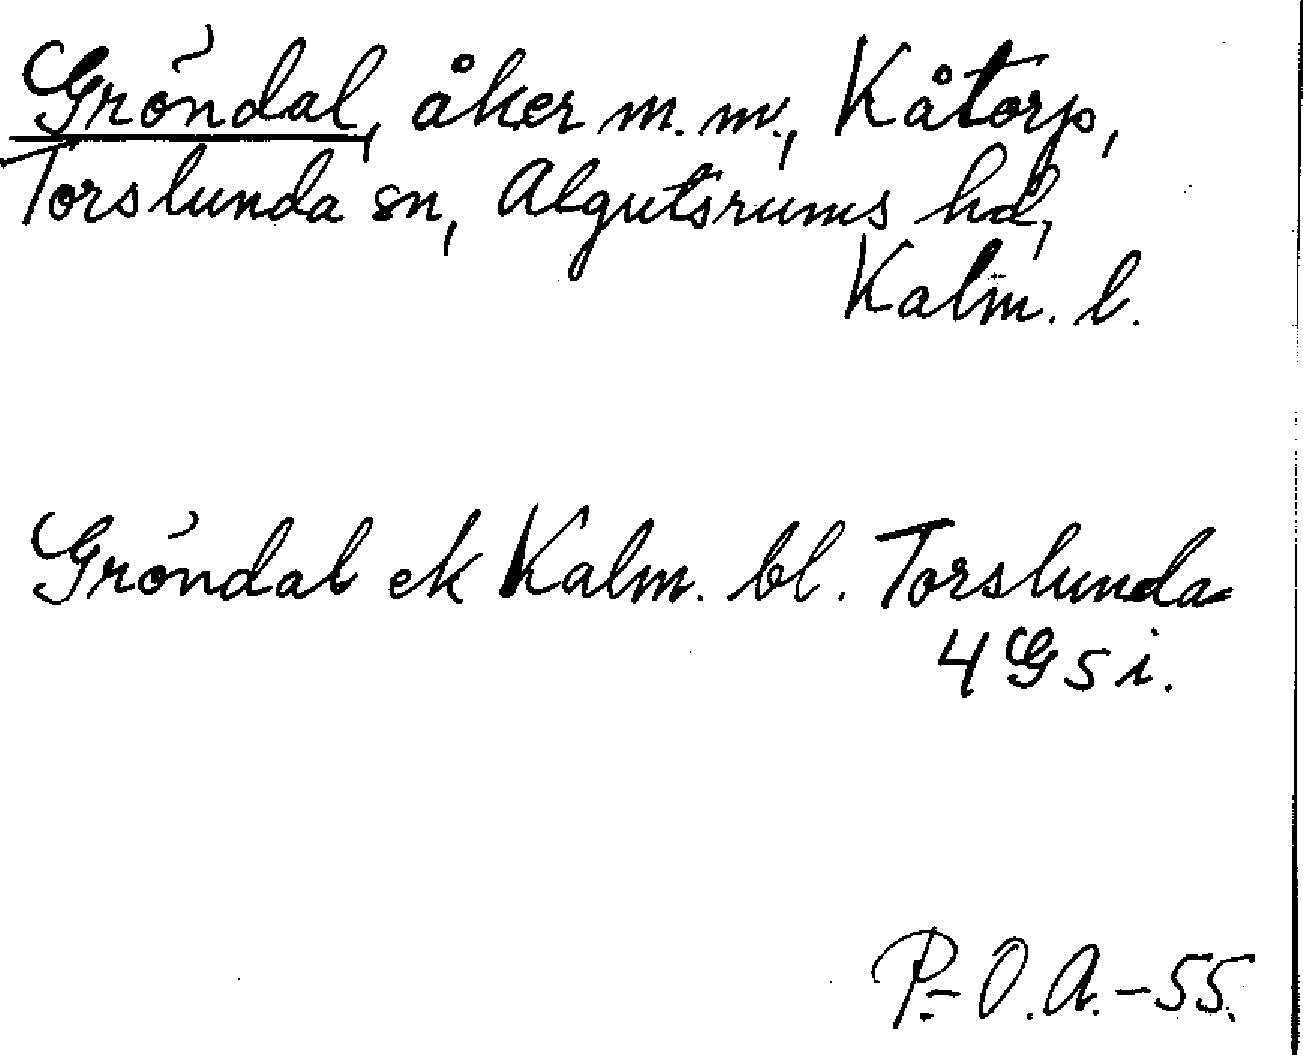 Gröndal, åker m.m., Kåtorp,
Torslunda sn, Algutsrums hd,
Kalm. l.
Gröndal ek Kalm. bl. Torslunda
4 G 5 i.
P.-O.A.-55.